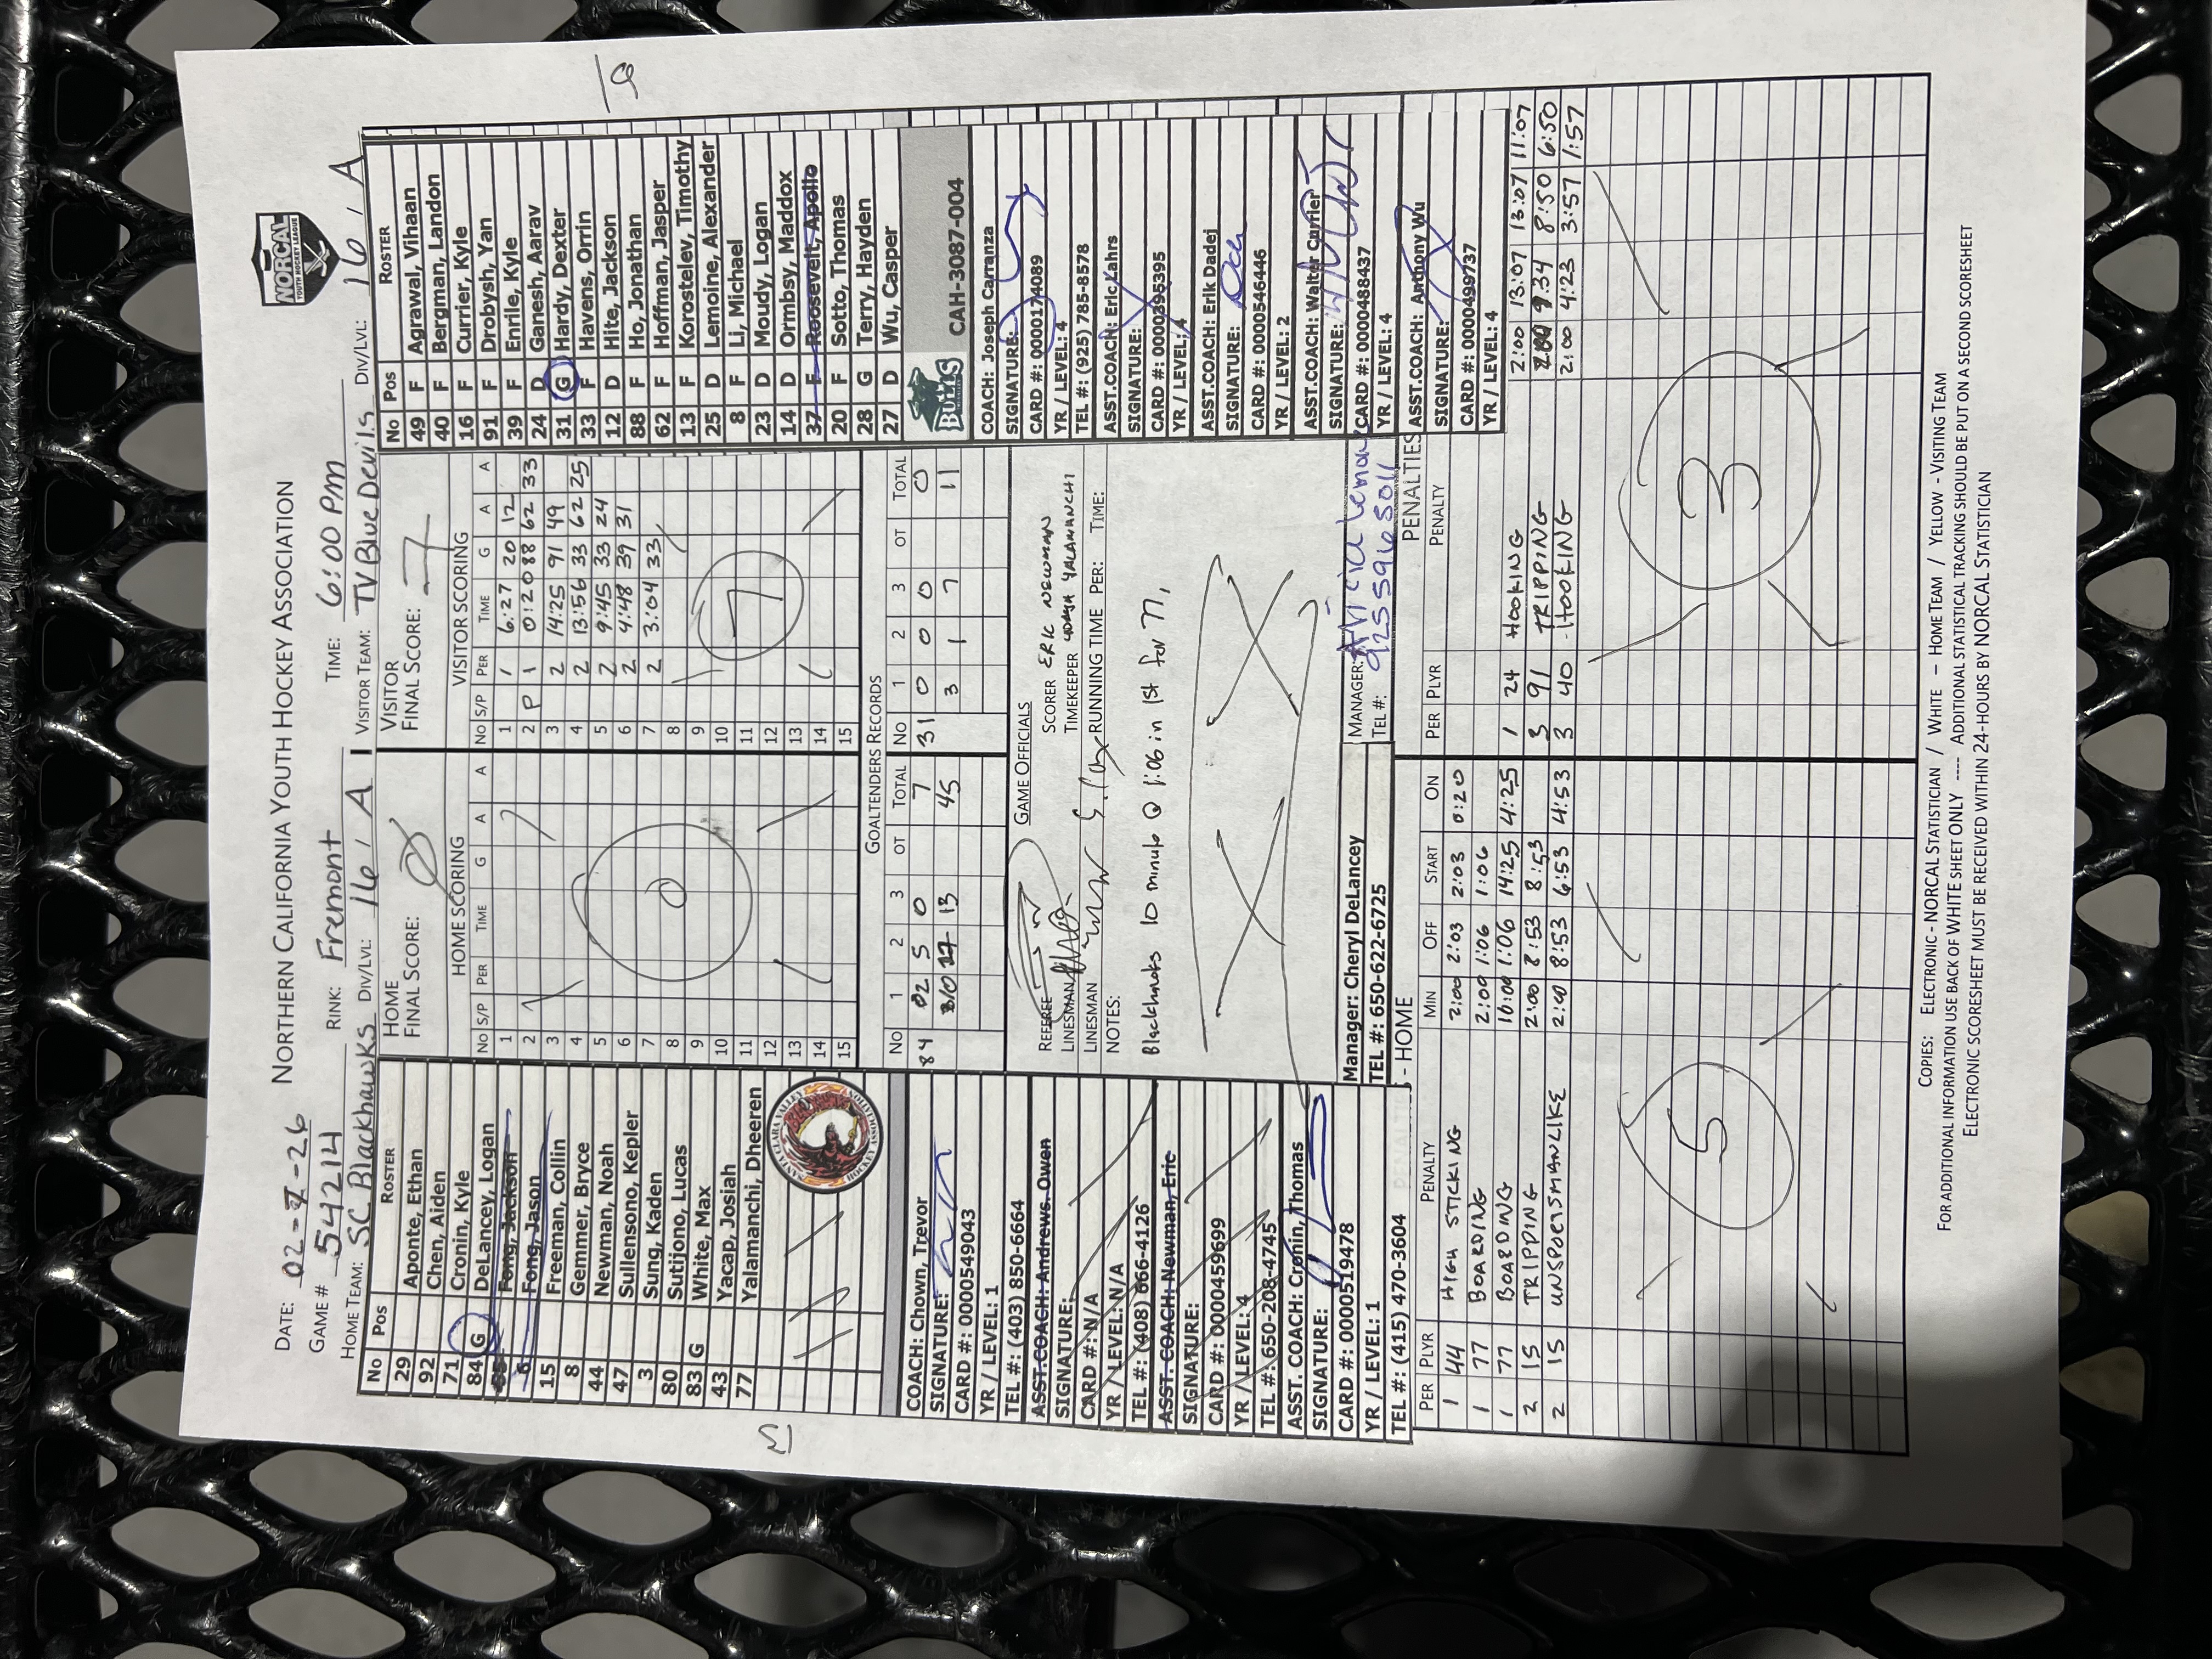 DATE: 02-7-26 NORTHERN CALIFORNIA YOUTH HOCKEY ASSOCIATION
NORCAL
YOUTH HOCKEY LEAGUE
GAME # 54214 RINK: Fremont TIME: 6:00 PM
HOME TEAM: SC Blackhawks DIV/LVL: 16 / A VISITOR TEAM: TV Blue Devils DIV/LVL: 16 / A
No Pos ROSTER
29 Aponte, Ethan
92 Chen, Aiden
71 Cronin, Kyle
84 G DeLancey, Logan
Fong, Jackson
6 Fong, Jason
15 Freeman, Collin
8 Gemmer, Bryce
44 Newman, Noah
47 Sullensono, Kepler
3 Sung, Kaden
80 Sutijono, Lucas
83 G White, Max
43 Yacap, Josiah
77 Yalamanchi, Dheeren
13
SANTA CLARA VALLEY
HOCKEY ASSOCIATION
COACH: Chown, Trevor
SIGNATURE:
CARD #: 0000549043
YR / LEVEL: 1
TEL #: (403) 850-6664
ASST.COACH: Andrews. Owen
SIGNATURE:
CARD #: N/A
YR / LEVEL: N/A
TEL #: (408) 666-4126
ASST. COACH: Newman, Eric
SIGNATURE:
CARD #: 0000459699
YR / LEVEL: 4
TEL #: 650-208-4745
ASST. COACH: Cronin, Thomas
SIGNATURE:
CARD #: 0000519478
YR / LEVEL: 1
TEL #: (415) 470-3604
HOME
FINAL SCORE: 0
HOME SCORING
No S/P PER TIME G A A
1
2
3
4
5
6
7
8
9
10
11
12
13
14
15
0
VISITOR
FINAL SCORE: 7
VISITOR SCORING
No S/P PER TIME G A A
1 1 6:27 20 12
2 P 1 0:20 88 62 33
3 2 14:25 91 49
4 2 13:56 33 62 25
5 2 9:45 33 24
6 2 4:48 39 31
7 2 3:04 33
8
9
10
11
12
13
14
15
7
GOALTENDERS RECORDS
No 1 2 3 OT TOTAL No 1 2 3 OT TOTAL
84 2 5 0 7 31 0 0 0 0
10 22 13 45 3 1 7 11
GAME OFFICIALS
REFEREE SCORER ERIC NEWMAN
LINESMAN TIMEKEEPER YALAMANCHI
LINESMAN RUNNING TIME PER: TIME:
NOTES:
Blackhawks 10 minute @ 1:06 in 1st for 77,
Manager: Cheryl DeLancey
TEL #: 650-622-6725
MANAGER:
TEL #: 925 596 5011
No Pos ROSTER
49 F Agrawal, Vihaan
40 F Bergman, Landon
16 F Currier, Kyle
91 F Drobysh, Yan
39 F Enrile, Kyle
24 D Ganesh, Aarav
31 G Hardy, Dexter
33 F Havens, Orrin
12 D Hite, Jackson
88 F Ho, Jonathan
62 F Hoffman, Jasper
13 F Korostelev, Timothy
25 D Lemoine, Alexander
8 F Li, Michael
23 D Moudy, Logan
14 D Ormbsy, Maddox
37 F Roosevelt, Apollo
20 F Sotto, Thomas
28 G Terry, Hayden
27 D Wu, Casper
CAH-3087-004
COACH: Joseph Carranza
SIGNATURE:
CARD #: 0000174089
YR / LEVEL: 4
TEL #: (925) 785-8578
ASST.COACH: Eric Kahrs
SIGNATURE:
CARD #: 0000395395
YR / LEVEL: 4
ASST.COACH: Erik Dadej
SIGNATURE:
CARD #: 0000546446
YR / LEVEL: 2
ASST.COACH: Walter Currier
SIGNATURE:
CARD #: 0000488437
YR / LEVEL: 4
ASST.COACH: Anthony Wu
SIGNATURE:
CARD #: 0000499737
YR / LEVEL: 4
- HOME
PER PLYR PENALTY MIN OFF START ON
1 44 HIGH STICKING 2:00 2:03 2:03 0:20
1 77 BOARDING 2:00 1:06 1:06
1 77 BOARDING 10:00 1:06 14:25 4:25
2 15 TRIPPING 2:00 8:53 8:53
2 15 UNSPOERSMANLIKE 2:00 8:53 6:53 4:53
5
PENALTIES
PER PLYR PENALTY
1 24 HOOKING 2:00 13:07 13:07 11:07
3 91 TRIPPING 9:34 8:50 6:50
3 40 HOOKING 2:00 4:23 3:57 1:57
3
COPIES: ELECTRONIC - NORCAL STATISTICIAN / WHITE - HOME TEAM / YELLOW - VISITING TEAM
FOR ADDITIONAL INFORMATION USE BACK OF WHITE SHEET ONLY ---- ADDITIONAL STATISTICAL TRACKING SHOULD BE PUT ON A SECOND SCORESHEET
ELECTRONIC SCORESHEET MUST BE RECEIVED WITHIN 24-HOURS BY NORCAL STATISTICIAN